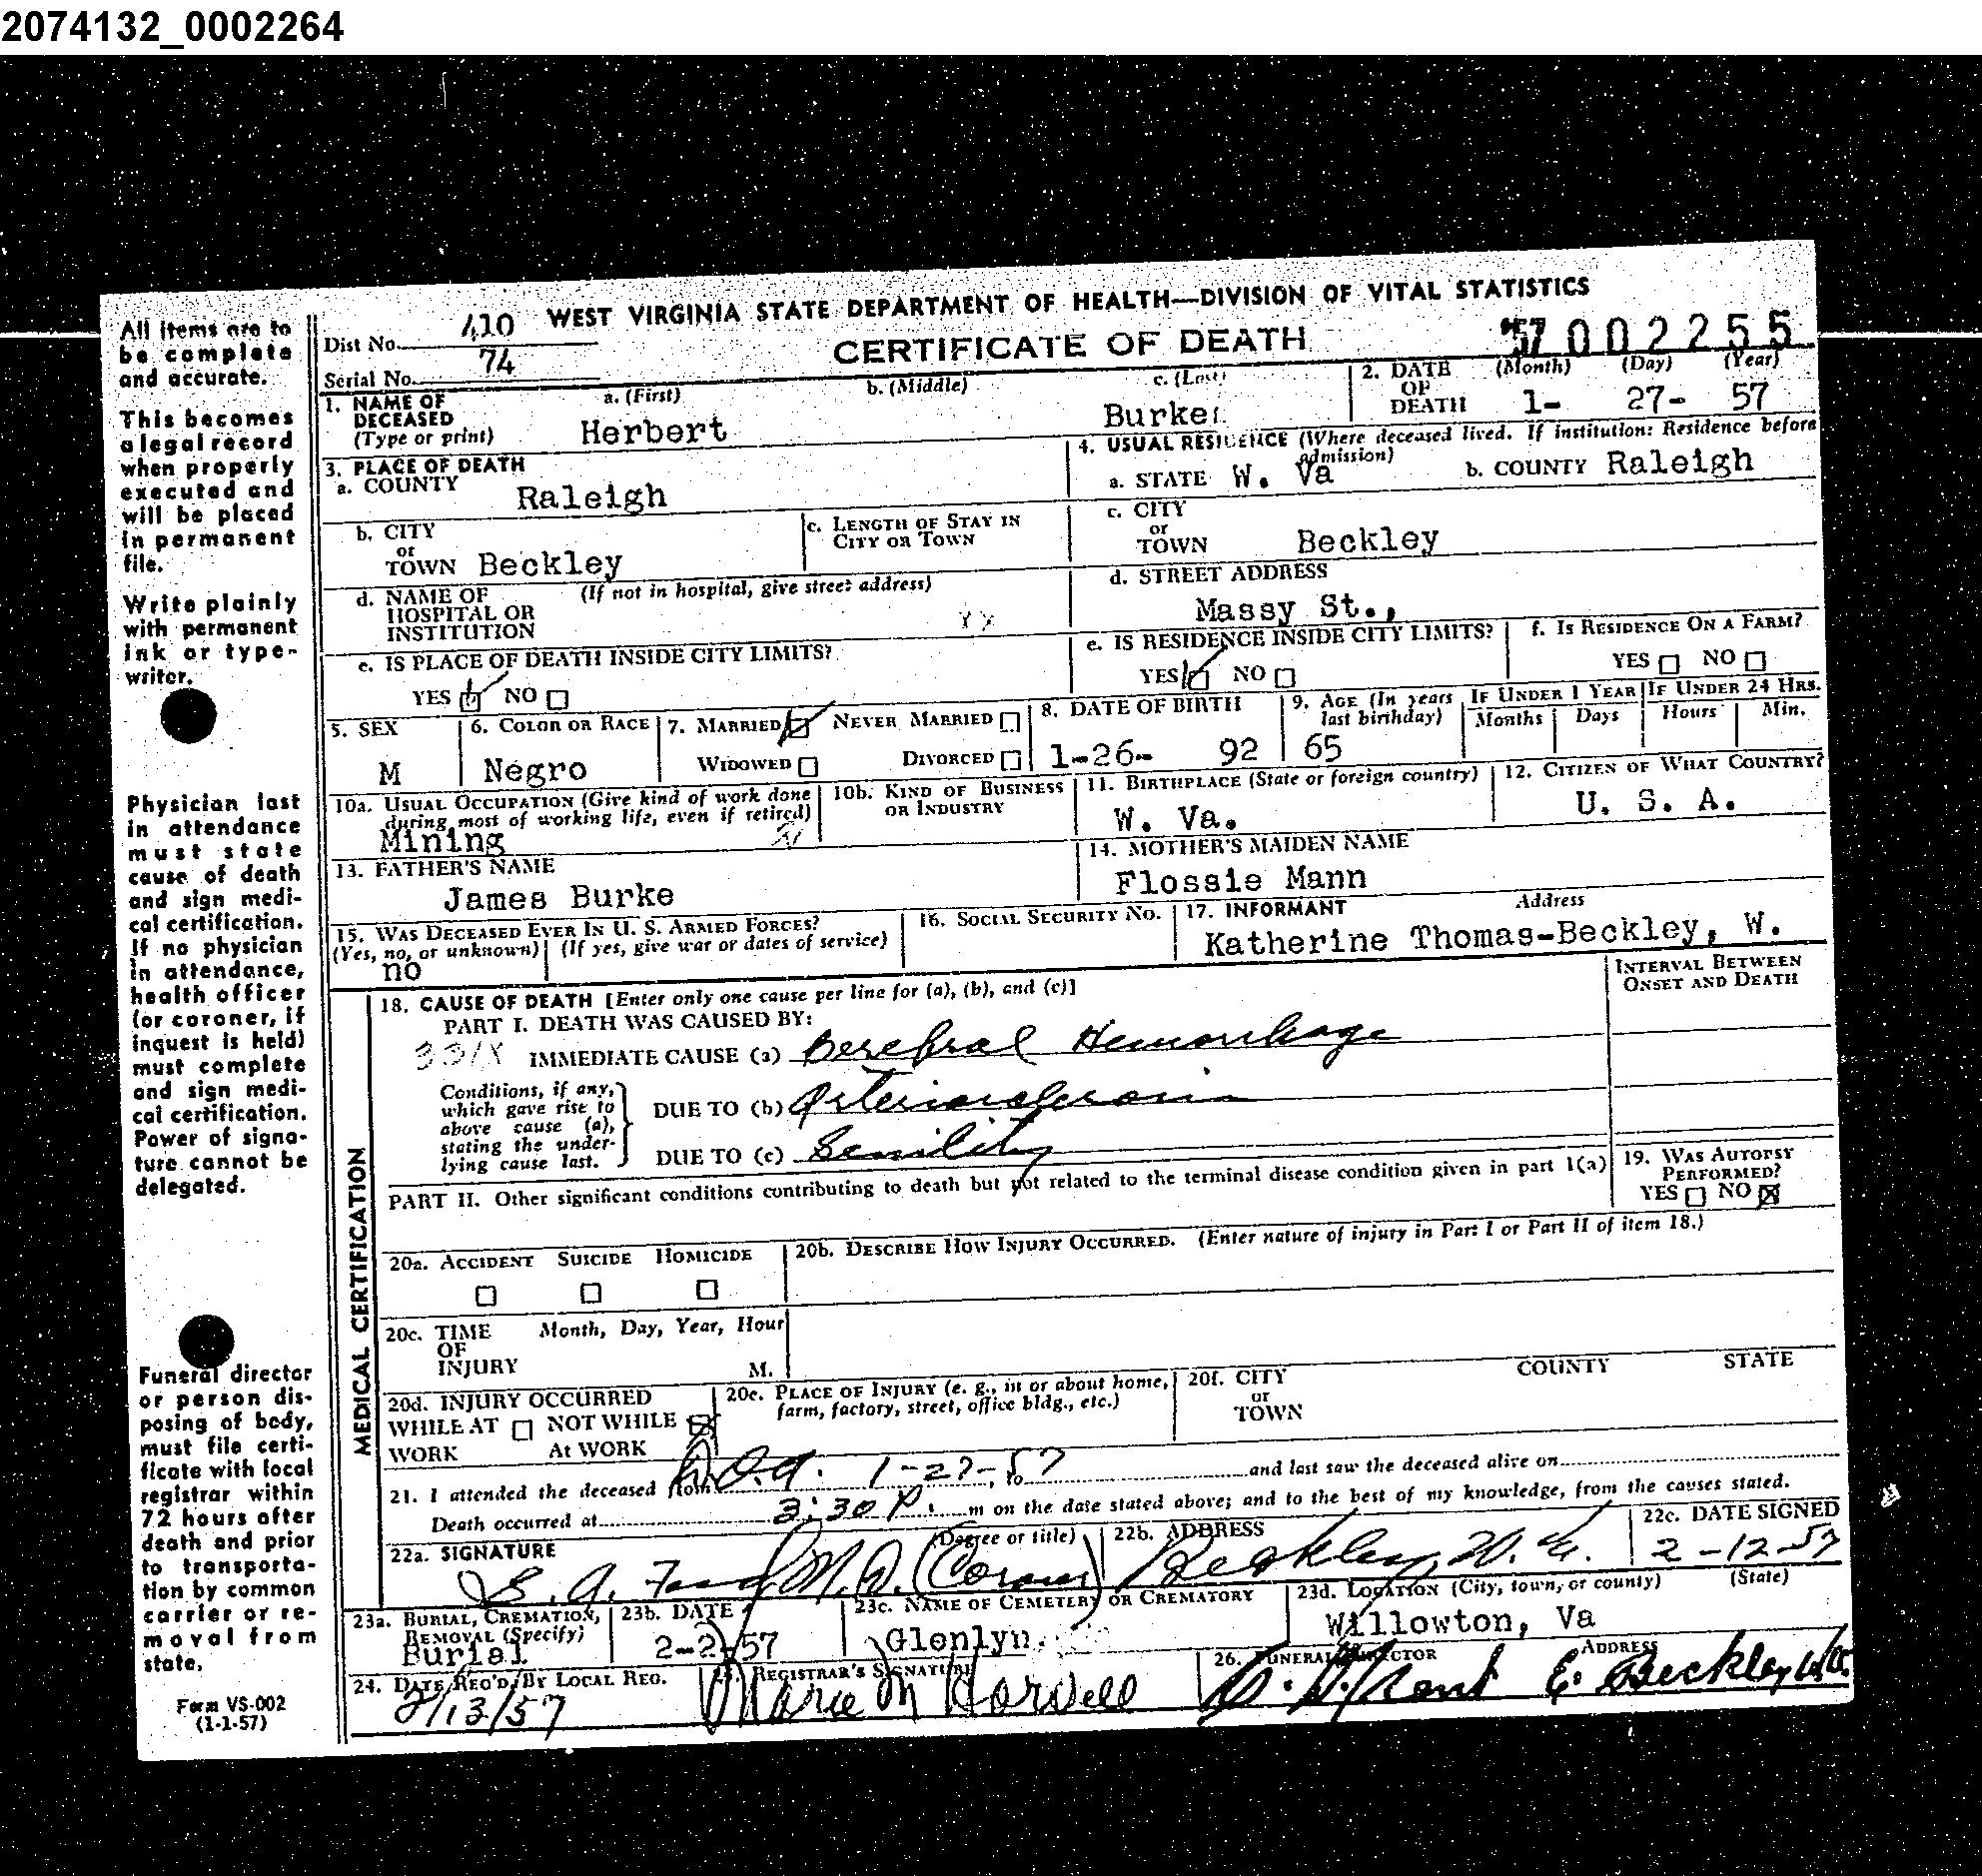 2074132_0002264
WEST VIRGINIA STATE DEPARTMENT OF HEALTH—DIVISION OF VITAL STATISTICS
CERTIFICATE OF DEATH
57 002255
Dist No. 410
Serial No. 74
All items are to
be complete
and accurate.
This becomes
a legal record
when properly
executed and
will be placed
in permanent
file.
Write plainly
with permanent
ink or type-
writer.
Physician last
in attendance
must state
cause of death
and sign medi-
cal certification.
If no physician
in attendance,
health officer
(or coroner, if
inquest is held)
must complete
and sign medi-
cal certification.
Power of signa-
ture cannot be
delegated.
Funeral director
or person dis-
posing of body,
must file certi-
ficate with local
registrar within
72 hours after
death and prior
to transporta-
tion by common
carrier or re-
moval from
state.
Form VS-002
(1-1-57)
1. NAME OF DECEASED (Type or print) a. (First) b. (Middle) c. (Last)
Herbert Burke
2. DATE OF DEATH (Month) (Day) (Year)
1- 27- 57
3. PLACE OF DEATH
a. COUNTY Raleigh
4. USUAL RESIDENCE (Where deceased lived. If institution: Residence before admission)
a. STATE W. Va b. COUNTY Raleigh
b. CITY or TOWN Beckley
c. LENGTH OF STAY IN CITY OR TOWN
c. CITY or TOWN Beckley
d. NAME OF HOSPITAL OR INSTITUTION (If not in hospital, give street address)
d. STREET ADDRESS
Massy St.,
e. IS PLACE OF DEATH INSIDE CITY LIMITS?
YES NO
e. IS RESIDENCE INSIDE CITY LIMITS?
YES NO
f. IS RESIDENCE ON A FARM?
YES NO
5. SEX M
6. COLOR OR RACE Negro
7. MARRIED NEVER MARRIED
WIDOWED DIVORCED
8. DATE OF BIRTH
1-26- 92
9. AGE (In years last birthday) 65
IF UNDER 1 YEAR Months Days
IF UNDER 24 HRS. Hours Min.
10a. USUAL OCCUPATION (Give kind of work done during most of working life, even if retired)
Mining
10b. KIND OF BUSINESS OR INDUSTRY
11. BIRTHPLACE (State or foreign country)
W. Va.
12. CITIZEN OF WHAT COUNTRY?
U. S. A.
13. FATHER'S NAME
James Burke
14. MOTHER'S MAIDEN NAME
Flossie Mann
15. WAS DECEASED EVER IN U. S. ARMED FORCES?
(Yes, no, or unknown) (If yes, give war or dates of service)
no
16. SOCIAL SECURITY NO.
17. INFORMANT Address
Katherine Thomas-Beckley, W.
MEDICAL CERTIFICATION
18. CAUSE OF DEATH [Enter only one cause per line for (a), (b), and (c)]
INTERVAL BETWEEN ONSET AND DEATH
PART I. DEATH WAS CAUSED BY:
331X IMMEDIATE CAUSE (a) Cerebral Hemorrhage
Conditions, if any, which gave rise to above cause (a), stating the underlying cause last.
DUE TO (b) Arteriosclerosis
DUE TO (c) Senility
PART II. Other significant conditions contributing to death but not related to the terminal disease condition given in part I(a)
19. WAS AUTOPSY PERFORMED?
YES NO
20a. ACCIDENT SUICIDE HOMICIDE
20b. DESCRIBE HOW INJURY OCCURRED. (Enter nature of injury in Part I or Part II of item 18.)
20c. TIME OF INJURY Month, Day, Year, Hour
M.
20d. INJURY OCCURRED
WHILE AT WORK NOT WHILE AT WORK
20e. PLACE OF INJURY (e. g., in or about home, farm, factory, street, office bldg., etc.)
20f. CITY or TOWN COUNTY STATE
21. I attended the deceased from D.O.A. 1-27-57, to and last saw the deceased alive on
Death occurred at 3:30 P. m on the date stated above; and to the best of my knowledge, from the causes stated.
22a. SIGNATURE (Degree or title)
M.D. (Coroner)
22b. ADDRESS
Beckley, W. Va.
22c. DATE SIGNED
2-12-57
23a. BURIAL, CREMATION, REMOVAL (Specify)
Burial
23b. DATE
2-2-57
23c. NAME OF CEMETERY OR CREMATORY
Glenlyn.
23d. LOCATION (City, town, or county) (State)
Willowton, Va
24. DATE REC'D BY LOCAL REG.
2/13/57
25. REGISTRAR'S SIGNATURE
Marie M Harvell
26. FUNERAL DIRECTOR ADDRESS
Beckley W.Va.